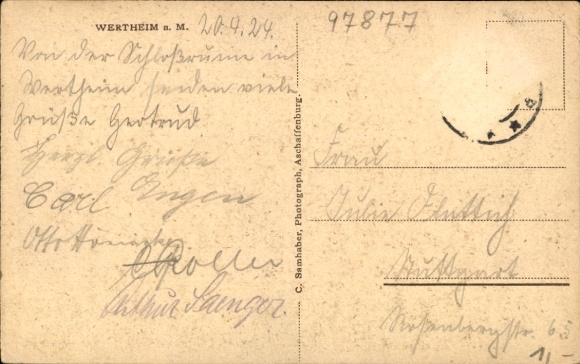 WERTHEIM a. M. 20.4.24.
97877
Von der Schloßruine in
Wertheim senden viele
Grüße Gertrud
Herzl. Grüße
Carl Eugen
Otto
Koller
Arthur Saenger.
C. Samhaber, Photograph, Aschaffenburg.
Frau
Julie
Stuttgart
Rosenbergstr. 65
1,-